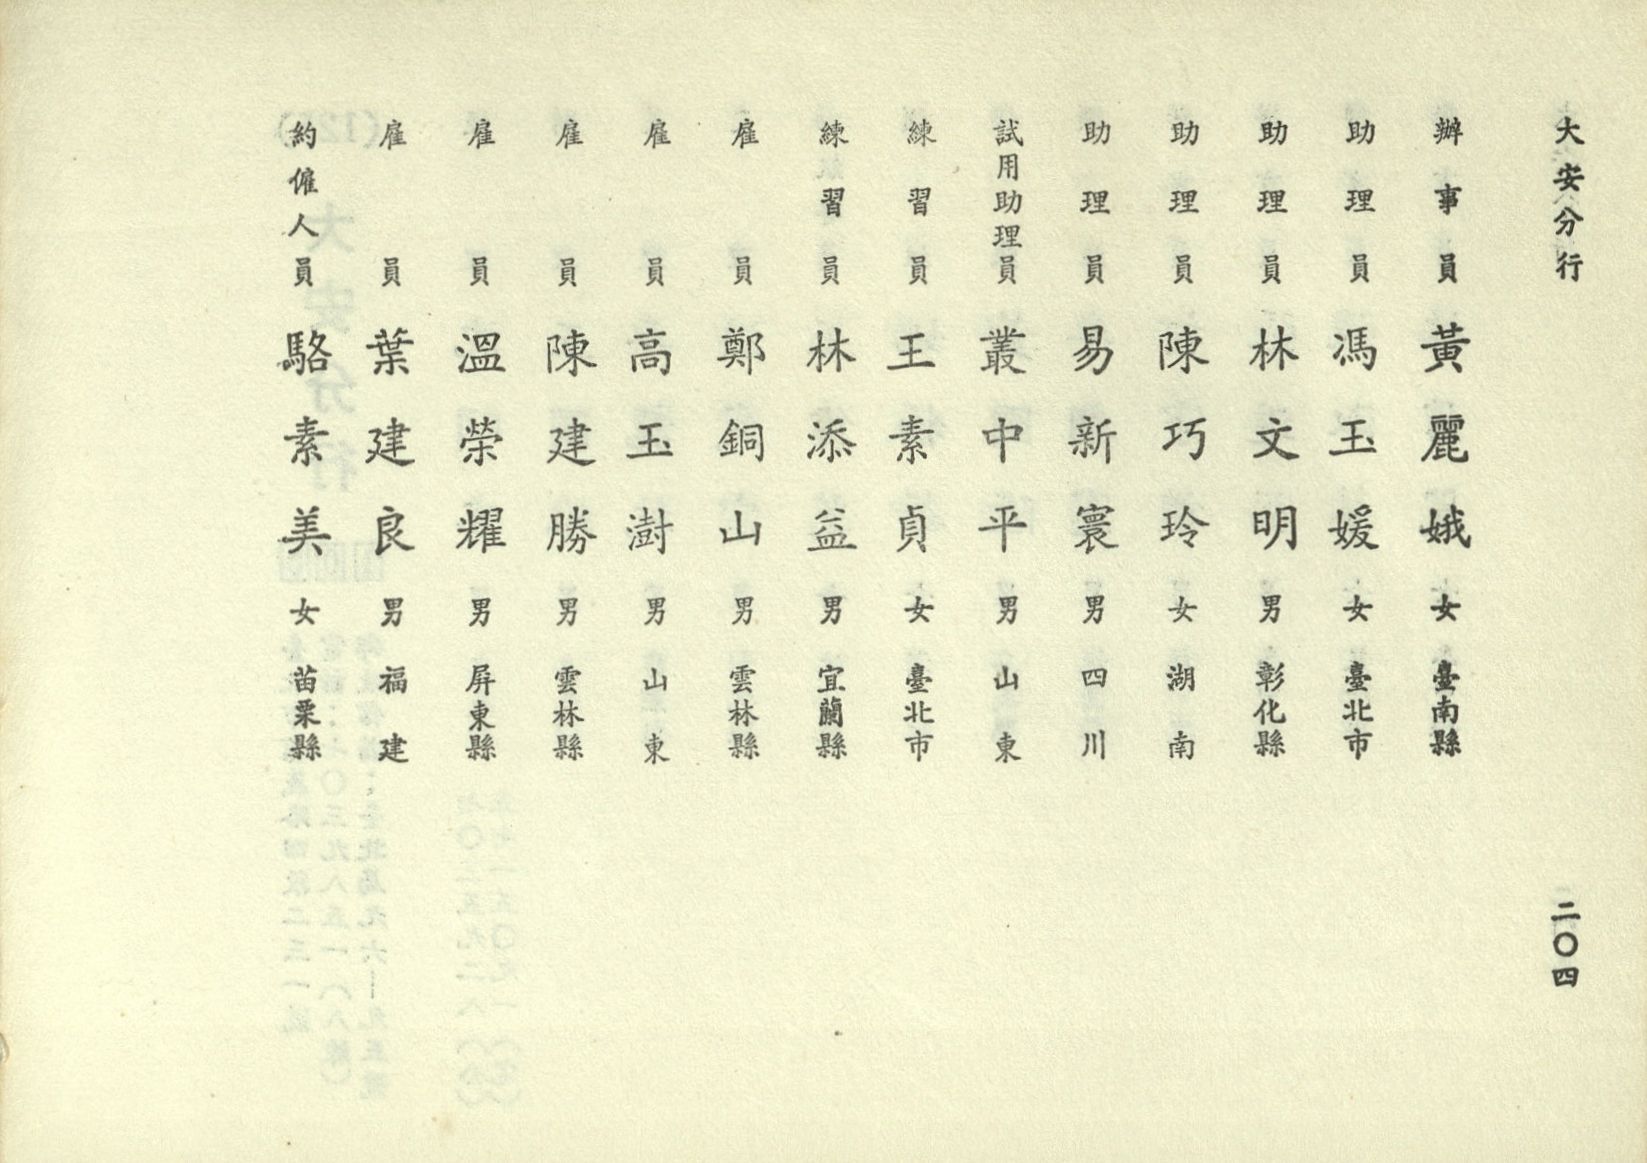 大安分行
二〇四
辦事員 黃麗娥 女 臺南縣
助理員 馮玉媛 女 臺北市
助理員 林文明 男 彰化縣
助理員 陳巧玲 女 湖南
助理員 易新寰 男 四川
試用助理員 叢中平 男 山東
練習員 王素貞 女 臺北市
練習員 林添益 男 宜蘭縣
雇員 鄭銅山 男 雲林縣
雇員 高玉澍 男 山東
雇員 陳建勝 男 雲林縣
雇員 溫榮耀 男 屏東縣
雇員 葉建良 男 福建
約僱人員 駱素美 女 苗栗縣